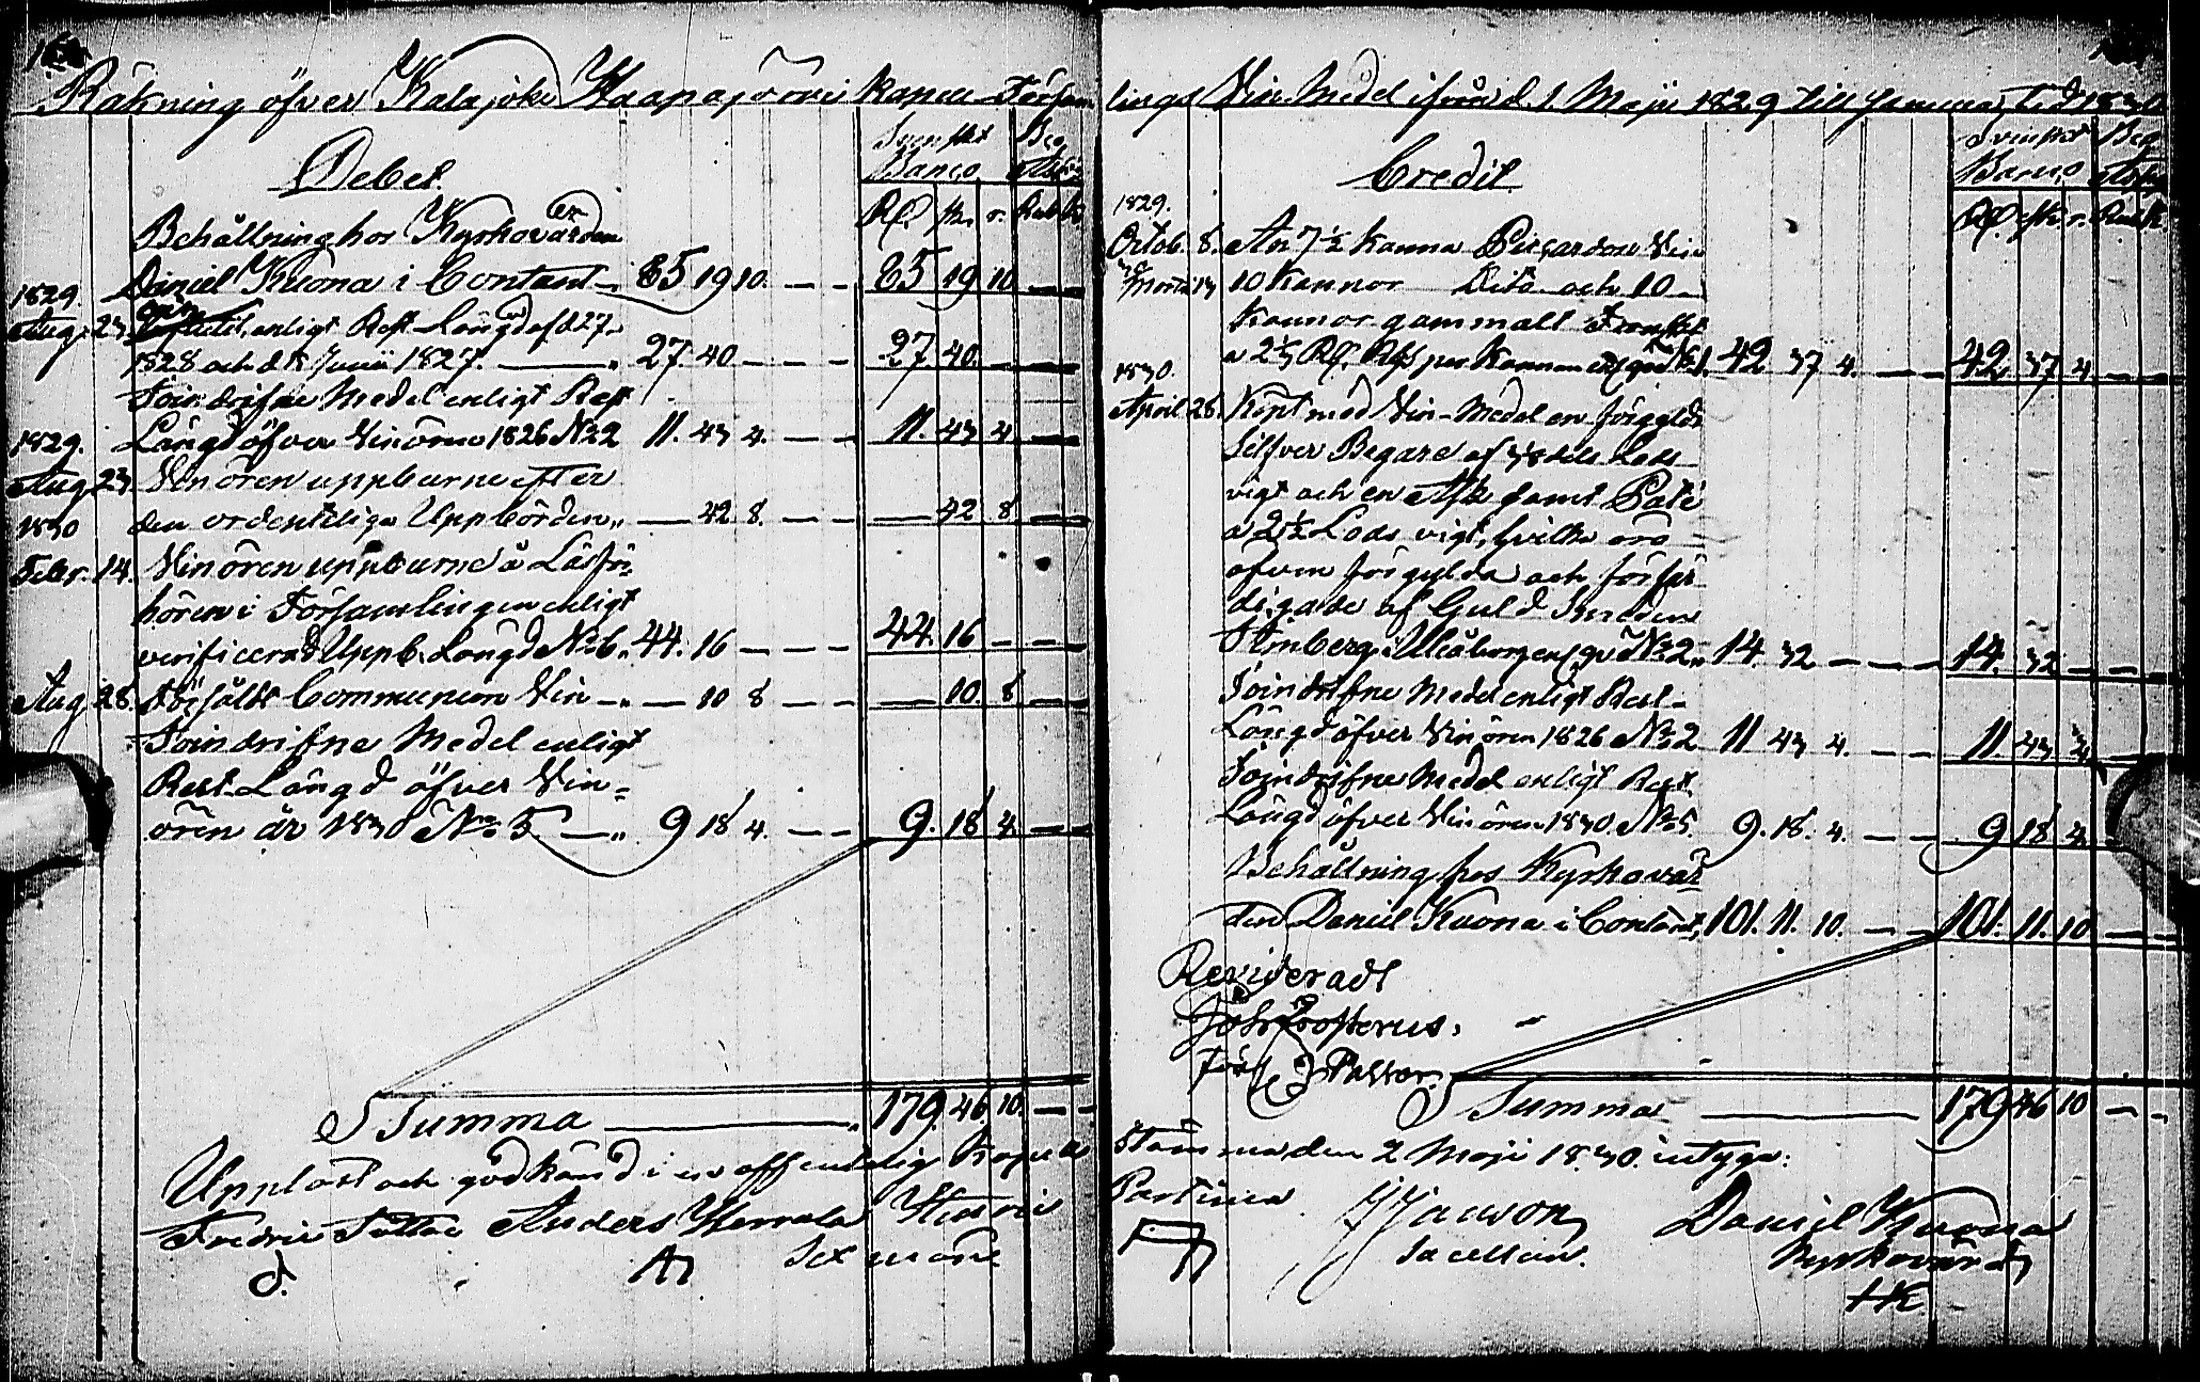 Räkning öfver Kalajoki Haapajärvi Kapell Försam
Svenskt Beg
Banco
Debet.
Rd. sk. r. Rub. K.
Behållning hos Kyrkovärden
1829. Daniel Kuona i Contant 35 19 10. 35 19 10
Aug. 23 enligt Rest-Längd af d 27
1828 och d 8 Junii 1827. 27. 40 27. 40.
Toindrifne Medel enligt Rest
1829. Längd öfver Vinören 1826 No 2 11. 43 4. 11. 43 4
Aug 23 Vinören uppburne efter
1830 den ordentliga Uppbörden 42 8. 42 8
Febr. 14 Vinören uppburne å Läsför-
hören i Församlingen enligt
verificerad Uppb. Längd No 6. 44. 16 44. 16
Aug 28. Försåldt Communion Vin 10 8 10. 8
Toindrifne Medel enligt
Rest-Längd öfver Vin=
ören år 1830 No 5 9 18 4. 9. 18 4
Summa 179. 46. 10.
Uppläst och godkänd i en offentelig Kapell
Fredric Anders Herrala Henric
Sexmäne
lings Vin Medel ifrån d. 1 Maji 1829 till samma tid 1830
Svenskt Beg
Banco
Credit
Rd. sk. r. Rub. K.
1829.
Octob. 8. An 7½ Kanna Vin
10 Kannor Dito och 10
Kannor gammalt Franskt
1830. a 2⅓ Rd. Rgs per Kannan No 1. 42 37 4. 42 37 4
April 28. Köpt med Vin-Medel en förgyld
Silfver Begare af Lods
vigt och en Ask samt Paté
a 2½ Lods vigt, hvilka äro
äfven förgylda och förfär
digade af Guld Smeden
i Uleåborg No 2 14. 32 14. 32
Toindrifne Medel enligt Rest-
Längd öfver Vinören 1826 No 2 11 43 4. 11. 43 4
Toindrifne Medel enligt Rest
Längd öfver Vinören 1830. No 5. 9. 18. 4. 9 18 4
Behållning hos Kyrkovär
den Daniel Kuona i Contant, 101. 11. 10. 101. 11. 10
Revideradt
Joh. Frosterus.
Pastor.
Summa 179 46 10
Stämma, den 2 Maji 1830. intyga:
Daniel Kuona
Sacellan. Kyrkovärd
HK